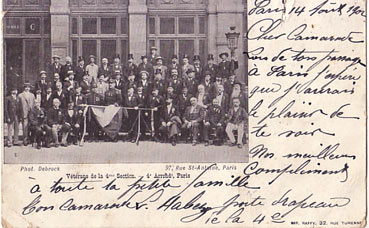 Paris 14 Août 1902
Cher Camarade
Lors de ton passage
à Paris j'espère
que j'aurais
le plaisir de
te voir
Mes meilleurs
Compliments
Phot. Debrock 37, Rue St-Antoine, Paris
Vétérans de la 4me Section. 4e Arrondt, Paris
à toute la petite famille
Ton Camarade porte drapeau
de la 4e
IMP. RAFFY, 22, RUE TURENNE